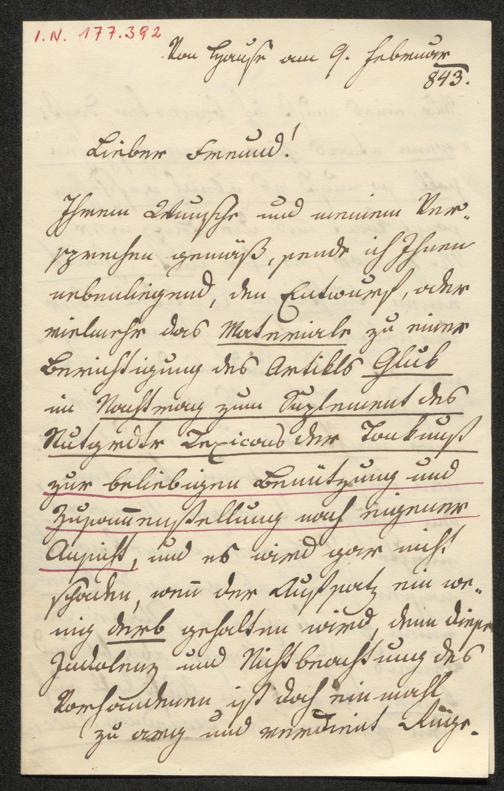 I.N. 177.392
Von Hause am 9. Februar
843.
Lieber Freund!
Ihrem Wunsche und meinem Ver-
sprechen gemäß, sende ich Ihnen
nebenliegend, den Entwurf, oder
vielmehr das Materiale zu einer
Berichtigung des Artikls
im Nachtrag zum Suplement des
Lexicons der Tonkunst
zur beliebigen Benützung und
Zusam̅enstellung nach eigener
Ansicht, und es wird gar nicht
schaden, wen̅ der Aufsatz ein we-
nig derb gehalten wird, denn diese
Indolenz und Nichtbeachtung des
Vorhandenen ist doch einmahl
zu arg und verdient Rüge.